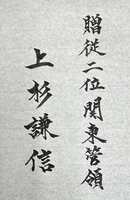 贈従二位関東管領
上杉謙信